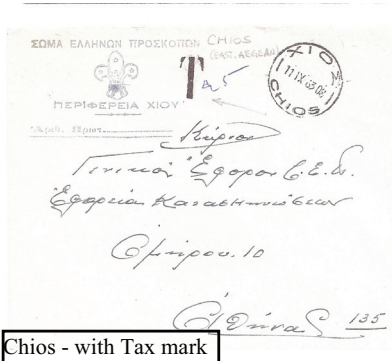 ΣΩΜΑ ΕΛΛΗΝΩΝ ΠΡΟΣΚΟΠΩΝ CHIOS
(EAST. AEGEAN)
T 25
ΧΙΟΣ
11 IX 83 08
CHIOS
ΠΕΡΙΦΕΡΕΙΑ ΧΙΟΥ
Ἀριθ. Πρωτ.
Κύριον
Γενικὸν Ἔφορον Σ.Ε.Π.
Ἐφορεία Κατασκηνώσεων
Ὁμήρου 10
Ἀθήνας 135
Chios - with Tax mark